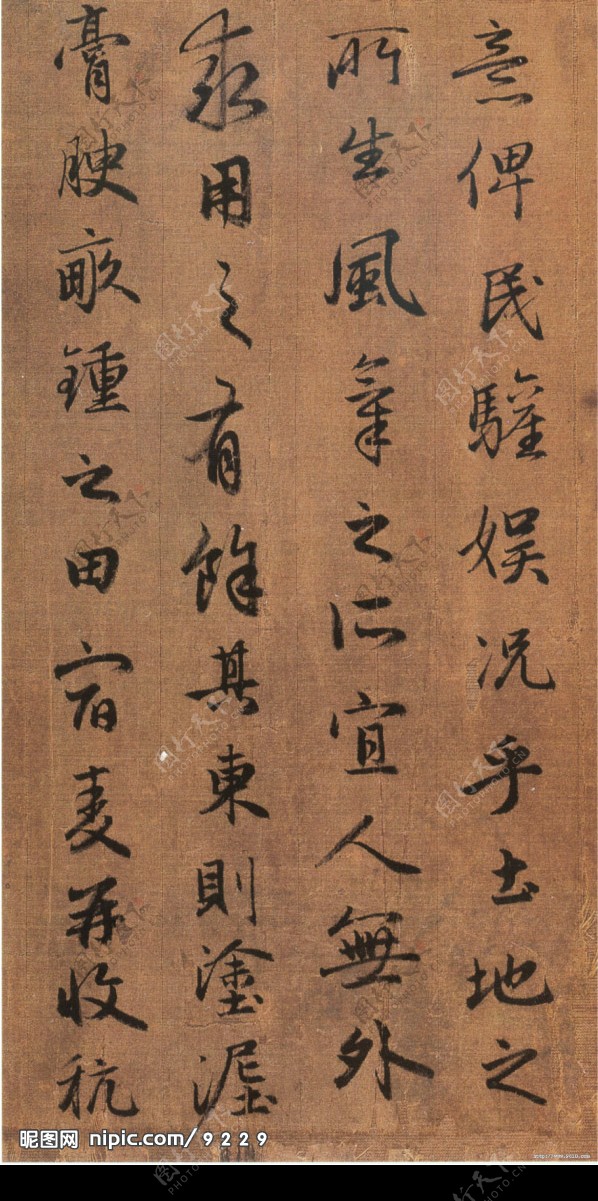 意俾民驩娱况乎土地之
所生風氣之所宜人無外
求用之有餘其東則塗泥
膏腴畝鍾之田宿麦再收秔
图行天下
PHOTOPHOTO.CN
昵图网 nipic.com/9229